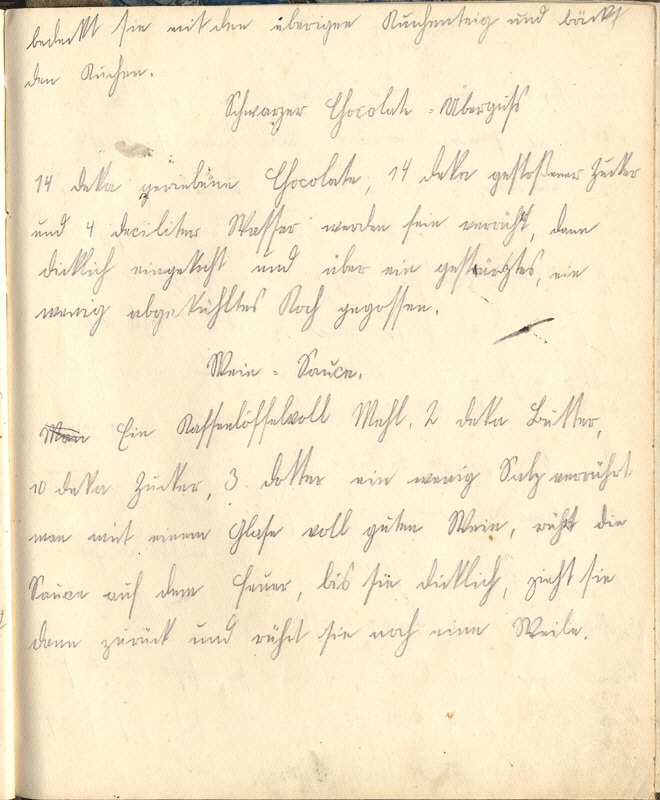 bedeckt sie mit den übrigen Kuchenteig und bäckt
den Kuchen.
Schwarzer Chocolate = Überguſs
14 deka geriebene Chocolate, 14 deka geſtoßener Zucker
und 4 deciliter Waſſer werden fein verrührt, dann
dicklich eingekocht und über ein geſtürztes, ein
wenig abgekühltes Koch gegoſſen.
Wein = Sauce.
Man Ein Kaffeelöffelvoll Mehl, 2 deka Butter,
10 deka Zucker, 3 dotter ein wenig Salz verrührt
man mit einem Glaſe voll guten Wein, rührt die
Sauce auf dem Feuer, bis ſie dicklich, zieht ſie
dann zurück und rührt ſie noch eine Weile.